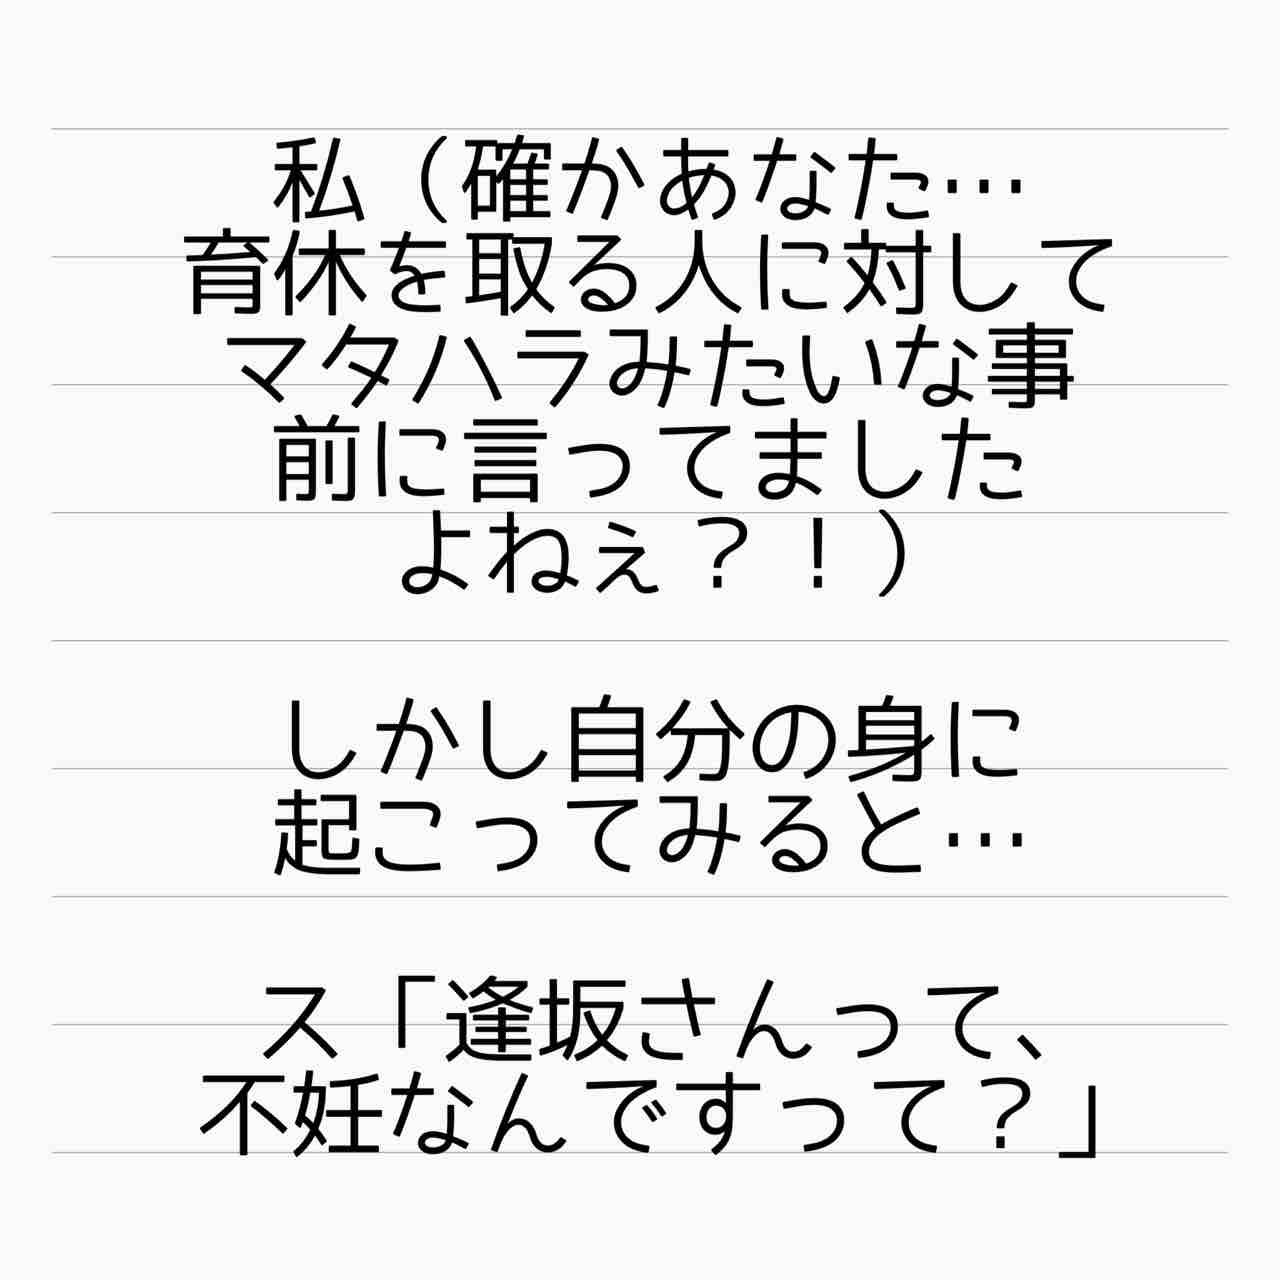 私（確かあなた…
育休を取る人に対して
マタハラみたいな事
前に言ってました
よねぇ？！）
しかし自分の身に
起こってみると…
ス「逢坂さんって、
不妊なんですって？」